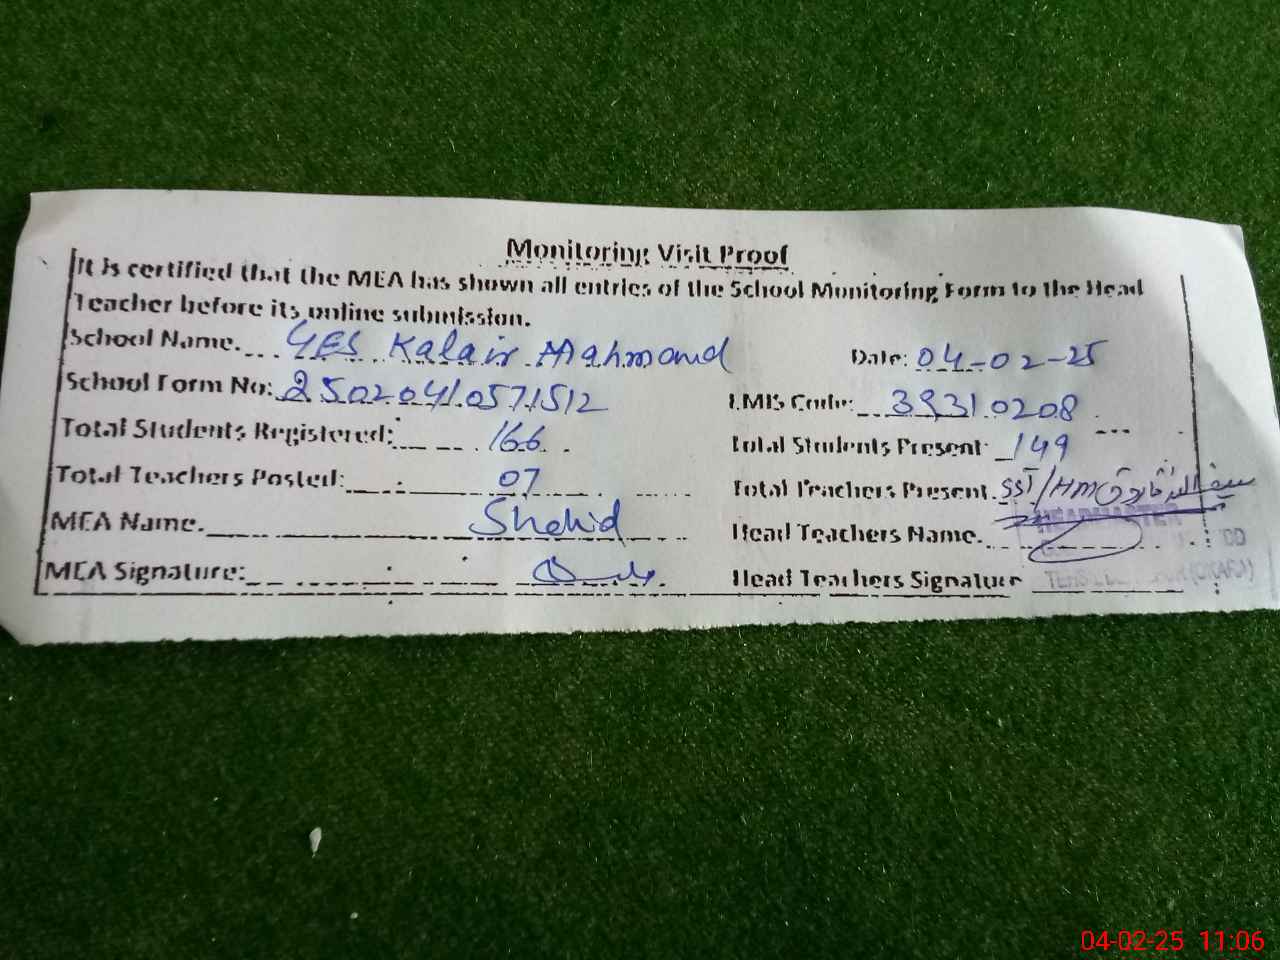 Monitoring Visit Proof
It is certified that the MEA has shown all entries of the School Monitoring Form to the Head
Teacher before its online submission.
School Name. GES Kalair Mahmoud Date: 04-02-25
School Form No: 25020410571512 EMIS Code: 39310208
Total Students Registered: 166 Total Students Present 149
Total Teachers Posted: 07 Total Teachers Present. SST/HM
MEA Name. Shahid Head Teachers Name. HEADMASTER
MEA Signature: Head Teachers Signature
04-02-25 11:06